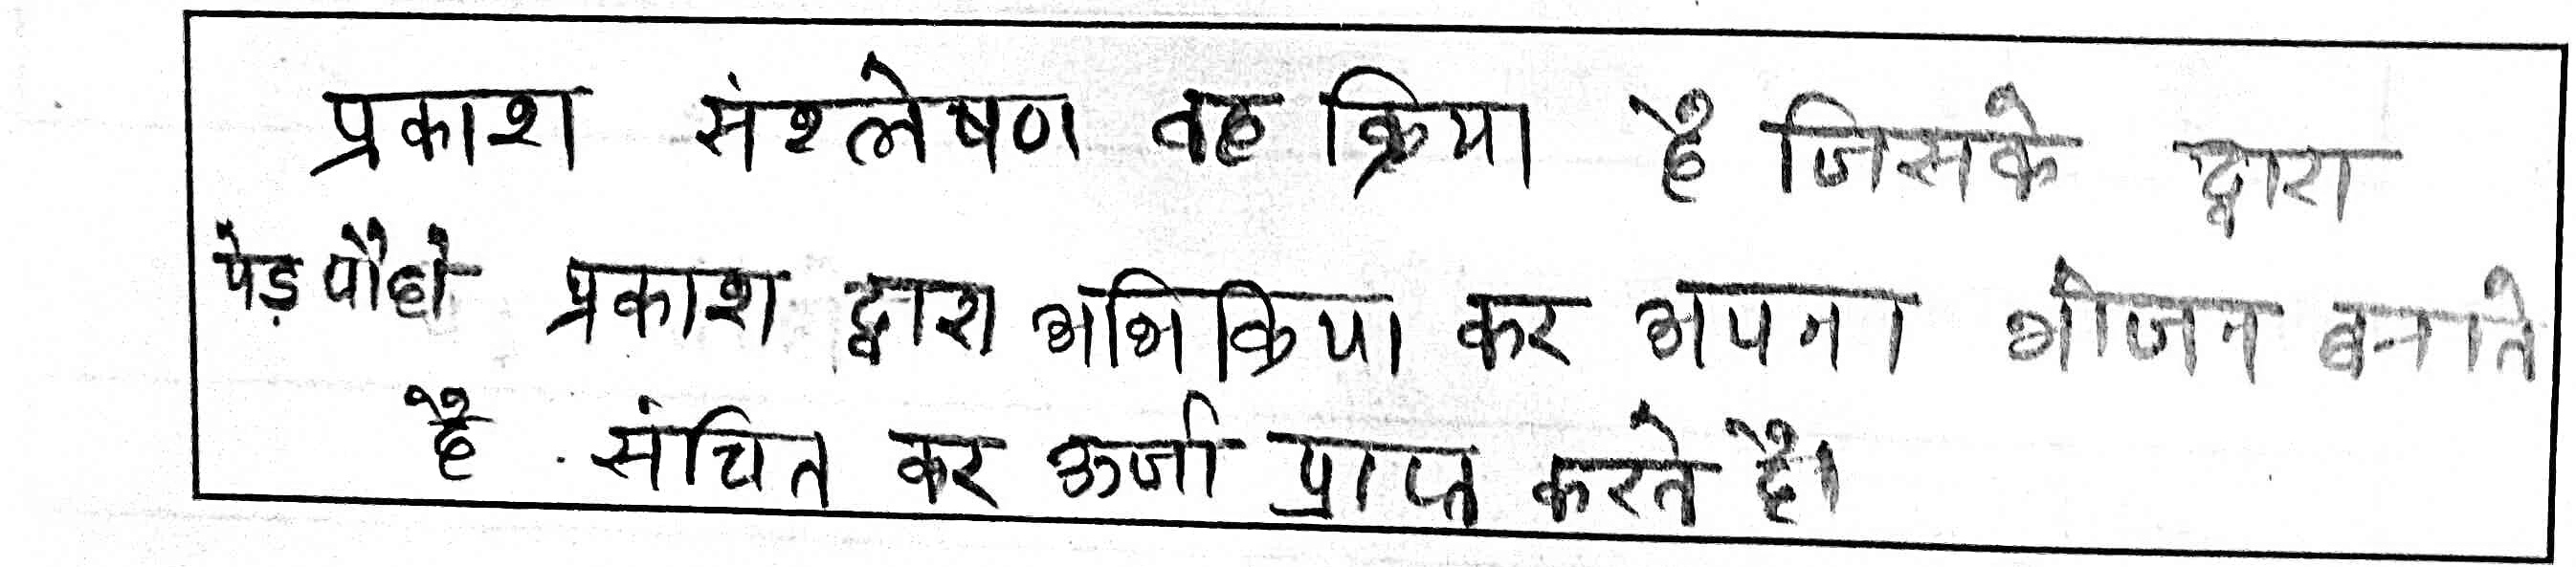 प्रकाश संश्लेषण वह क्रिया है जिसके द्वारा
पेड़ पौधे प्रकाश द्वारा अभिक्रिया कर अपना भोजन बनाते
है संचित कर ऊर्जा प्राप्त करते है।